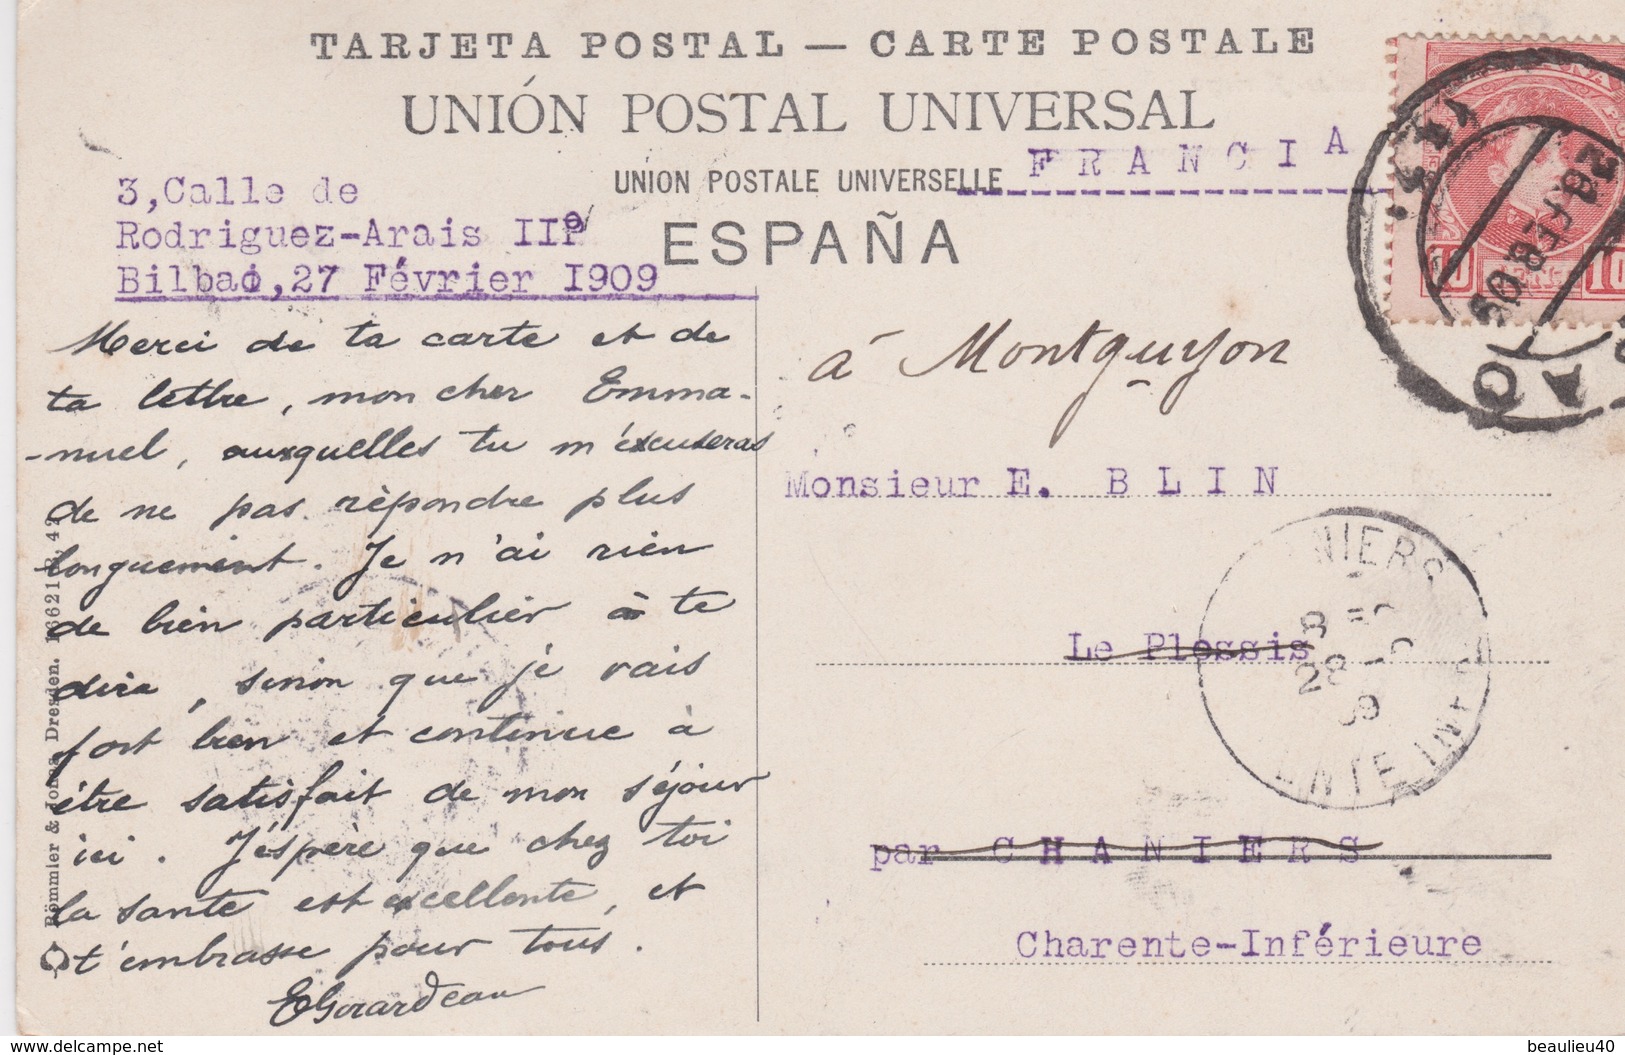 TARJETA POSTAL — CARTE POSTALE
UNIÓN POSTAL UNIVERSAL
UNION POSTALE UNIVERSELLE
ESPAÑA
FRANCIA
3, Calle de
Rodriguez-Arais IIº
Bilbao, 27 Février 1909
Merci de ta carte et de
ta lettre, mon cher Emma-
-nuel, auxquelles tu m'excuseras
de ne pas répondre plus
longuement. Je n'ai rien
de bien particulier à te
dire, sinon que je vais
fort bien et continue à
être satisfait de mon séjour
ici. J'espère que chez toi
la santé est excellente, et
t'embrasse pour tous.
EGirardeau
à Montguyon
Monsieur E. BLIN
Le Plessis
par CHANIERS
Charente-Inférieure
Römmler & Jonas, Dresden.
10 10
28 FEB 09
NIERS
28
09
ENTE INF
beaulieu40